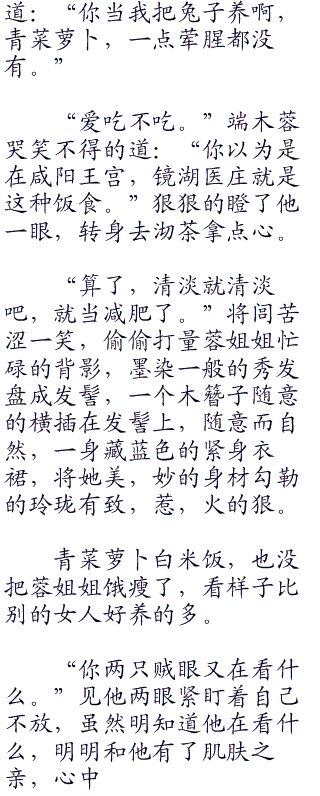 道：“你当我把兔子养啊，
青菜萝卜，一点荤腥都没
有。”
“爱吃不吃。”端木蓉
哭笑不得的道：“你以为是
在咸阳王宫，镜湖医庄就是
这种饭食。”狠狠的瞪了他
一眼，转身去沏茶拿点心。
“算了，清淡就清淡
吧，就当减肥了。”将闾苦
涩一笑，偷偷打量蓉姐姐忙
碌的背影，墨染一般的秀发
盘成发髻，一个木簪子随意
的横插在发髻上，随意而自
然，一身藏蓝色的紧身衣
裙，将她美，妙的身材勾勒
的玲珑有致，惹，火的狠。
青菜萝卜白米饭，也没
把蓉姐姐饿瘦了，看样子比
别的女人好养的多。
“你两只贼眼又在看什
么。”见他两眼紧盯着自己
不放，虽然明知道他在看什
么，明明和他有了肌肤之
亲，心中